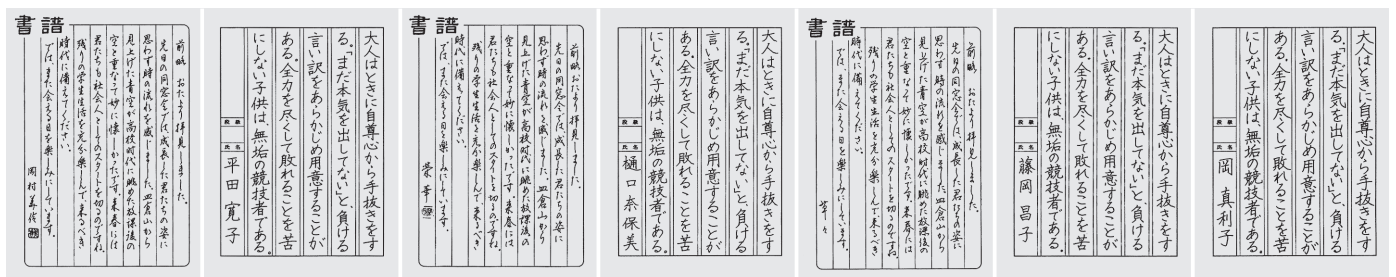 書譜
前略 おたより拝見しました。
先日の同窓会では、成長した君たちの姿に
思わず時の流れを感じました。皿倉山から
見上げた青空が高校時代に眺めた放課後の
空と重なって妙に懐しかったです。来春には
君たちも社会人としてのスタートを切るのですね。
残りの学生生活を充分楽しんで、来るべき
時代に備えてください。
では、また会える日を楽しみにしています。
大人はときに自尊心から手抜きをす
る。「まだ本気を出してない」と、負ける
言い訳をあらかじめ用意することが
ある。全力を尽くして敗れることを苦
にしない子供は、無垢の競技者である。
段級 氏名 平田寛子
書譜
前略 おたより拝見しました。
先日の同窓会では、成長した君たちの姿に
思わず時の流れを感じました。皿倉山から
見上げた青空が高校時代に眺めた放課後の
空と重なって妙に懐しかったです。来春には
君たちも社会人としてのスタートを切るのですね。
残りの学生生活を充分楽しんで、来るべき
時代に備えてください。
では、また会える日を楽しみにしています。
大人はときに自尊心から手抜きをす
る。「まだ本気を出してない」と、負ける
言い訳をあらかじめ用意することが
ある。全力を尽くして敗れることを苦
にしない子供は、無垢の競技者である。
段級 氏名 樋口奈保美
書譜
前略 おたより拝見しました。
先日の同窓会では、成長した君たちの姿に
思わず時の流れを感じました。皿倉山から
見上げた青空が高校時代に眺めた放課後の
空と重なって妙に懐しかったです。来春には
君たちも社会人としてのスタートを切るのですね。
残りの学生生活を充分楽しんで、来るべき
時代に備えてください。
では、また会える日を楽しみにしています。
大人はときに自尊心から手抜きをす
る。「まだ本気を出してない」と、負ける
言い訳をあらかじめ用意することが
ある。全力を尽くして敗れることを苦
にしない子供は、無垢の競技者である。
段級 氏名 藤岡昌子
大人はときに自尊心から手抜きをす
る。「まだ本気を出してない」と、負ける
言い訳をあらかじめ用意することが
ある。全力を尽くして敗れることを苦
にしない子供は、無垢の競技者である。
段級 氏名 岡真利子